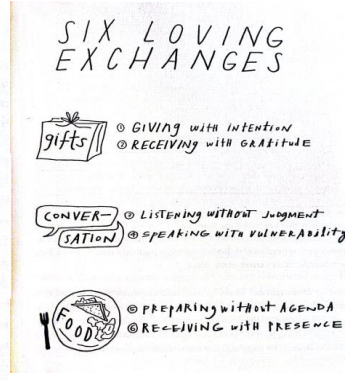 SIX LOVING
EXCHANGES
gifts
① GIVING WITH INTENTION
② RECEIVING WITH GRATITUDE
CONVER-
SATION
③ LISTENING WITHOUT JUDGMENT
④ SPEAKING WITH VULNERABILITY
FOOD
⑤ PREPARING WITHOUT AGENDA
⑥ RECEIVING WITH PRESENCE